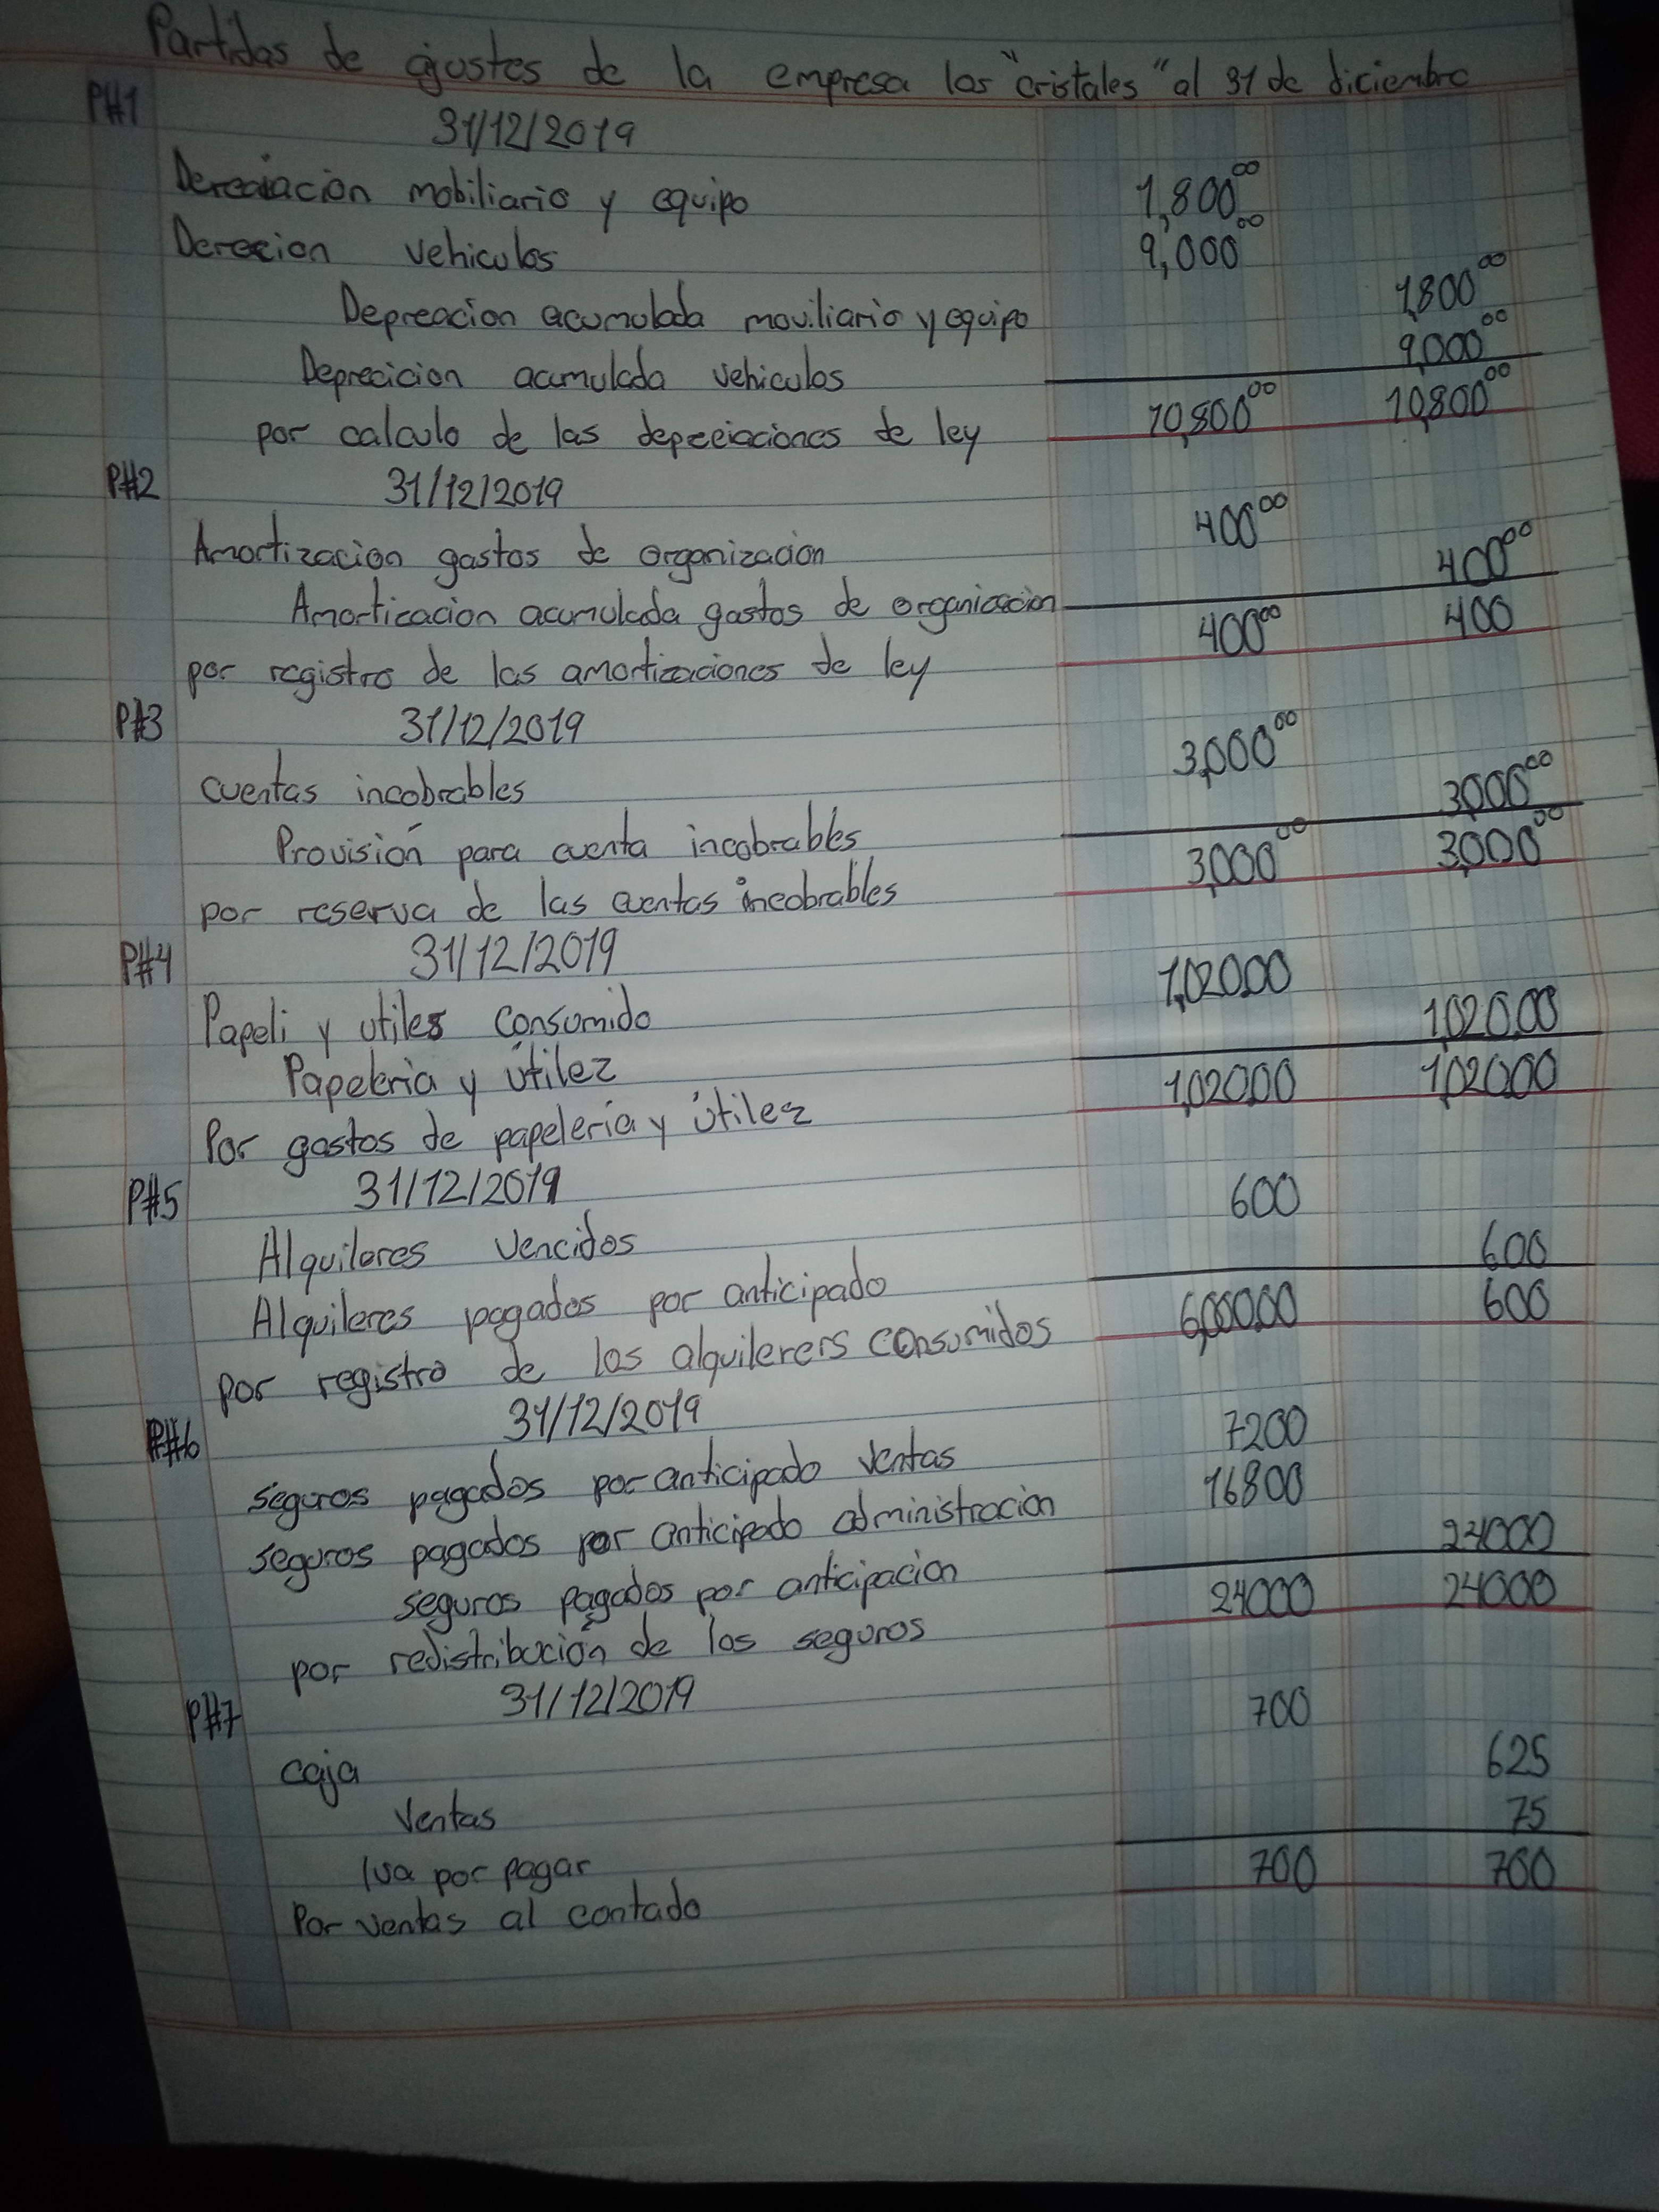 Partidas de ajustes de la empresa los "cristales" al 31 de diciembre
P#1 31/12/2019
Dereciacion mobiliario y equipo 1,800.00
Derecion vehiculos 9,000.00
Depreacion acumulada moviliario y equipo 1,800.00
Deprecicion acumulada vehiculos 9,000.00
por calculo de las depreciaciones de ley 10,800.00 10,800.00
P#2 31/12/2019
Amortizacion gastos de organización 400.00
Amorticacion acumulada gastos de organicacion 400.00
por registro de las amortizaciones de ley 400.00 400
P#3 31/12/2019
cuentas incobrables 3,000.00
Provisión para cuenta incobrables 3,000.00
por reserva de las cuentas incobrables 3,000.00 3,000.00
P#4 31/12/2019
Papeli y utiles consumido 1,020.00
Papeleria y útilez 1,020.00
Por gastos de papelería y útilez 1,020.00 1,020.00
P#5 31/12/2019
Alquileres vencidos 600
Alquileres pagados por anticipado 600
por registro de los alquilerers consumidos 6,000.00 600
P#6 31/12/2019
seguros pagados por anticipado ventas 7200
seguros pagados por anticipado administracion 16800
seguros pagados por anticipación 24000
por redistribución de los seguros 24000 24000
P#7 31/12/2019
caja 700
ventas 625
Iva por pagar 75
Por ventas al contado 700 700